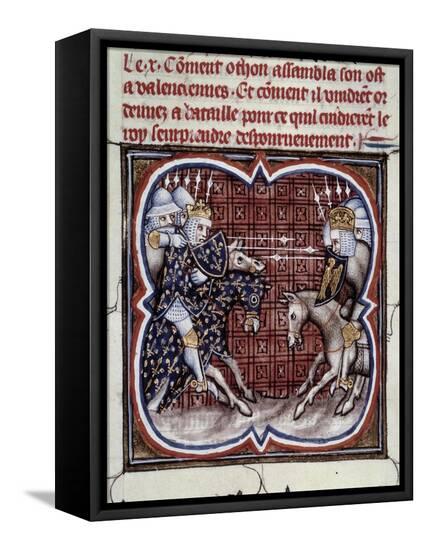 Le .x. Cōment othon assambla son ost
a valenciennes. Et cōment il vindrēt or
dennez a bataille pour ce quil cuidierēt le
roy seurprendre despourueuement.